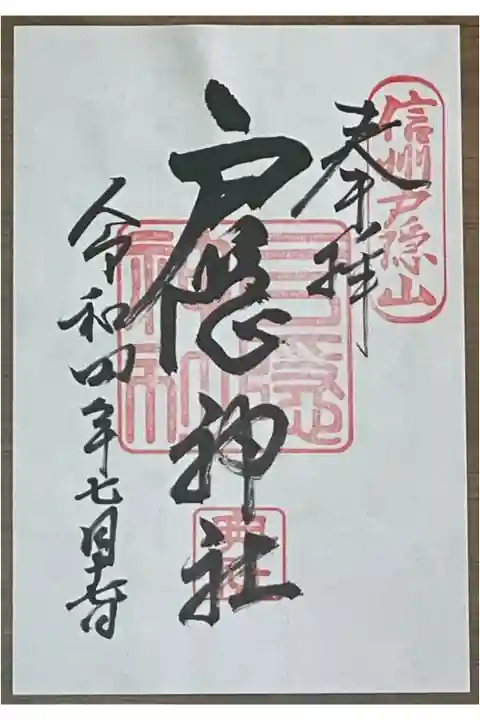 信州戸隠山
奉拝
戸隠神社
戸隠神社
奥社
令和四年七月